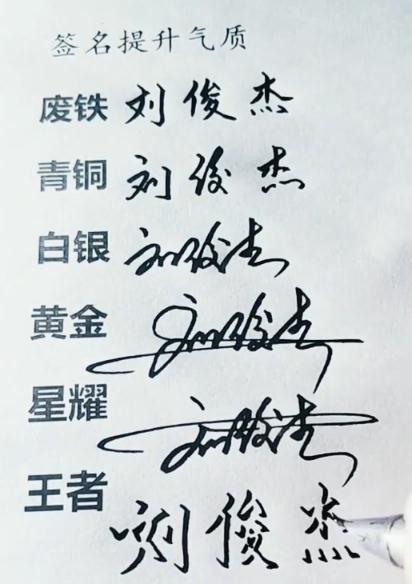 签名提升气质
废铁 刘俊杰
青铜 刘俊杰
白银 刘俊杰
黄金 刘俊杰
星耀 刘俊杰
王者 刘俊杰